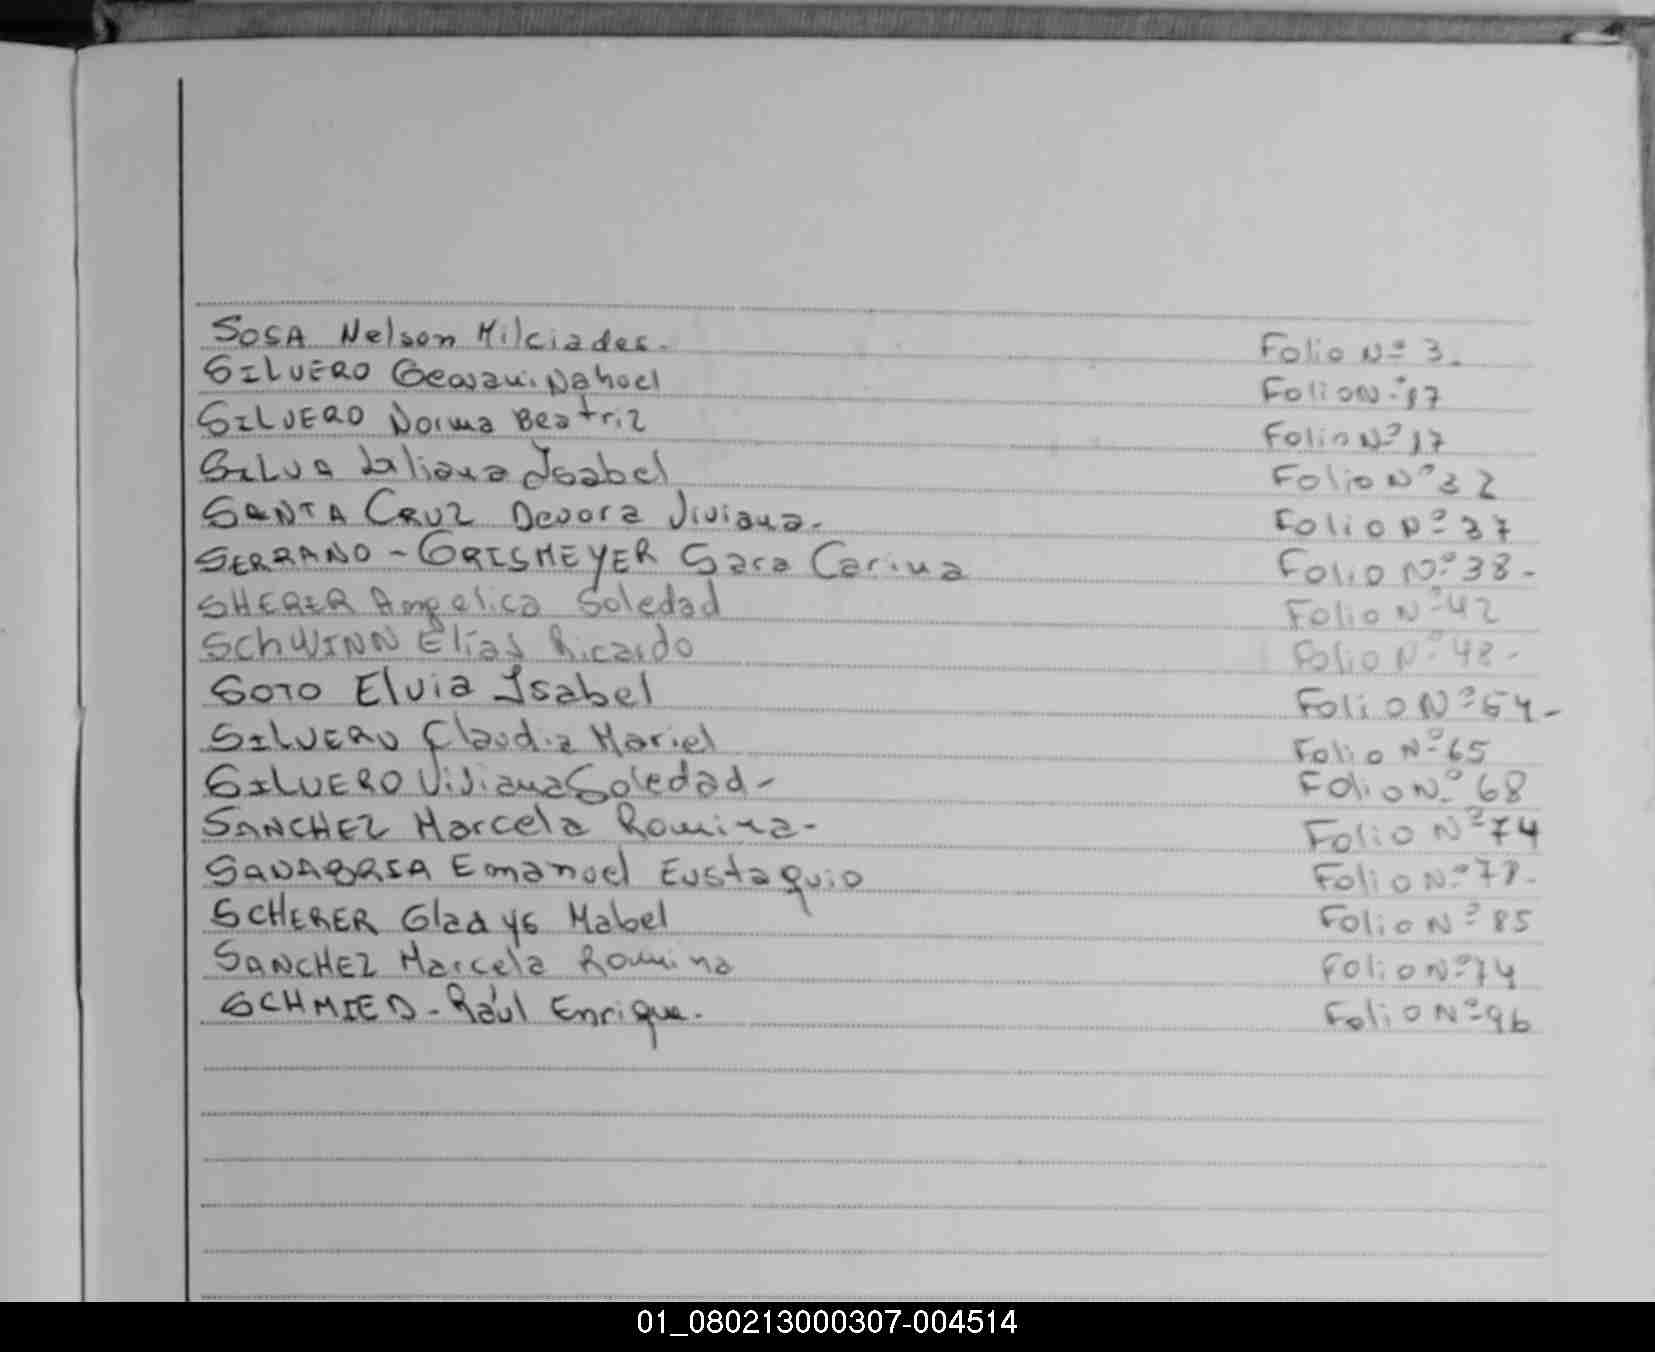 SOSA Nelson Milciades. Folio Nº 3.
SILVERO Geovani Nahuel Folio Nº 17
SILVERO Norma Beatriz Folio Nº 17
SILVA Liliana Isabel Folio Nº 32
SANTA CRUZ Devora Viviana. Folio Nº 37
SERRANO - GRISMEYER Sara Carina Folio Nº 38-
SHERER Angelica Soledad Folio Nº 42
SCHWINN Elías Ricardo Folio Nº 48-
SOTO Elvia Isabel Folio Nº 54-
SILVERO Claudia Mariel Folio Nº 65
SILVERO Viviana Soledad- Folio Nº 68
SANCHEZ Marcela Romina- Folio Nº 74
SANABRIA Emanuel Eustaquio Folio Nº 78-
SCHERER Gladys Mabel Folio Nº 85
SANCHEZ Marcela Romina Folio Nº 74
SCHMIED - Raúl Enrique. Folio Nº 96
01_080213000307-004514